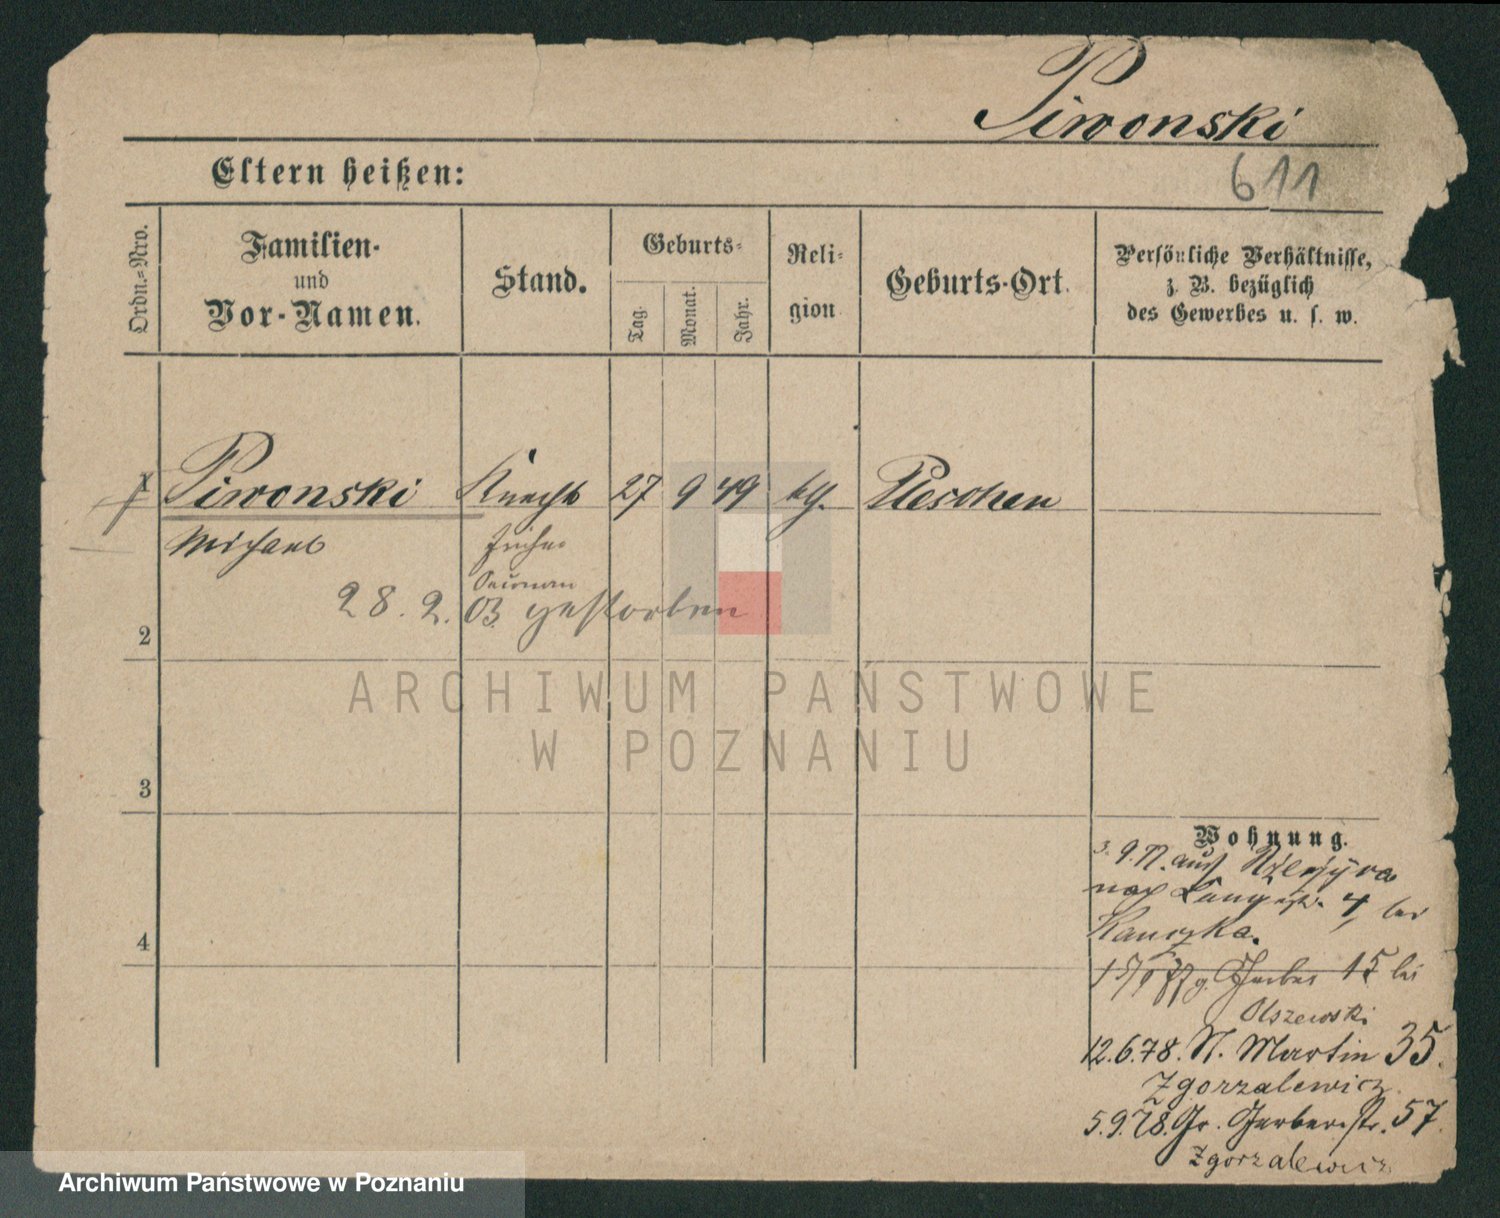 Piwonski
611
Eltern heißen:
Ordn.=Nro.
Familien-
und
Vor-Namen.
Stand.
Geburts-
Tag.
Monat.
Jahr.
Reli-
gion
Geburts-Ort.
Persönliche Verhältnisse,
z. B. bezüglich
des Gewerbes u. s. w.
1 Piwonski Knecht 27 9 49 kg. Pleschen
Michael
28. 2. 03. gestorben
2
3
4
Wohnung.
3. 9. 77. aus
nach 4, bei
Kanczka.
Gerber 15 bei
Olszewski
12.6.78. St. Martin 35.
Zgorzalewicz.
5.9.78. Gr. Gerberstr. 57.
Zgorzalewicz
ARCHIWUM PAŃSTWOWE
W POZNANIU
Archiwum Państwowe w Poznaniu